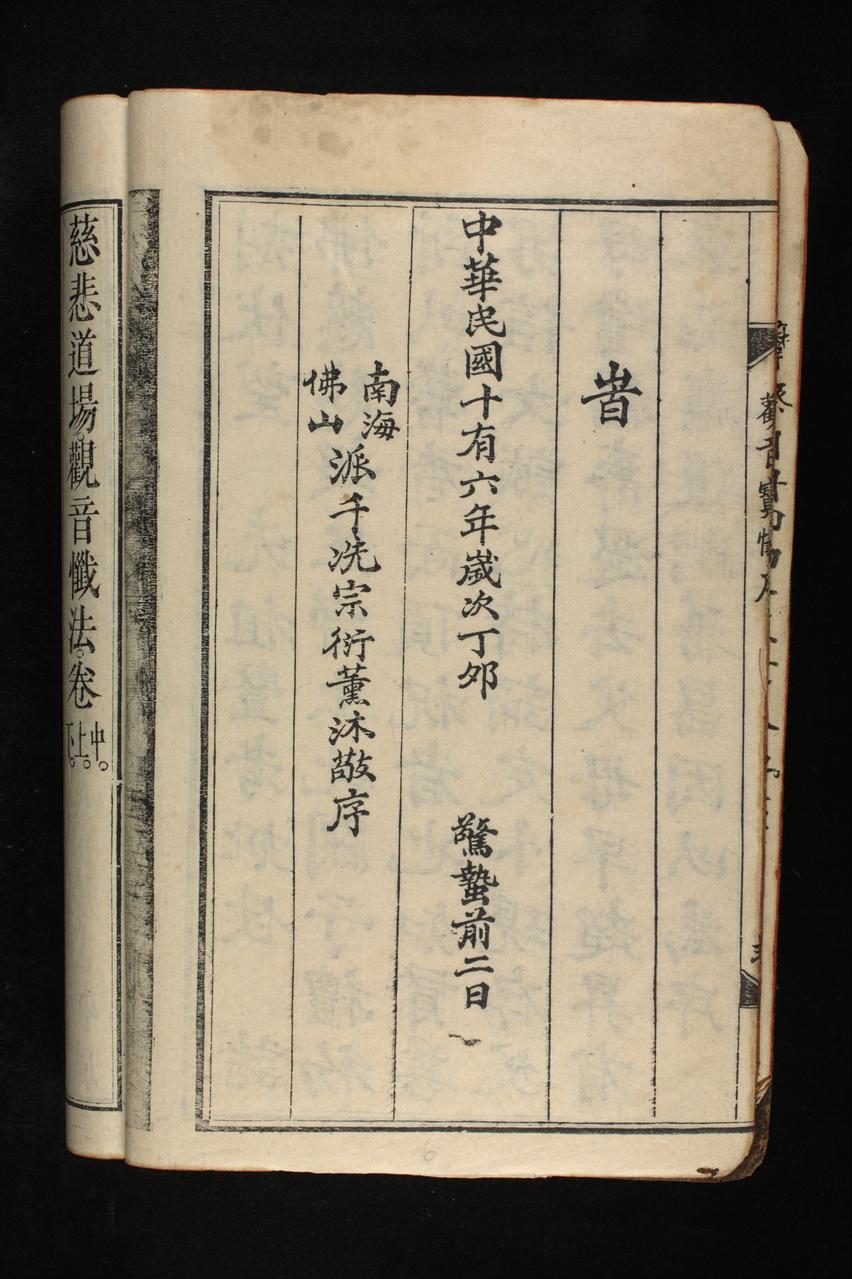 旹
中華民國十有六年歲次丁卯 驚蟄前二日
南海
佛山
派千冼宗衍薰沐敬序
慈悲道場觀音懺法卷 中上下